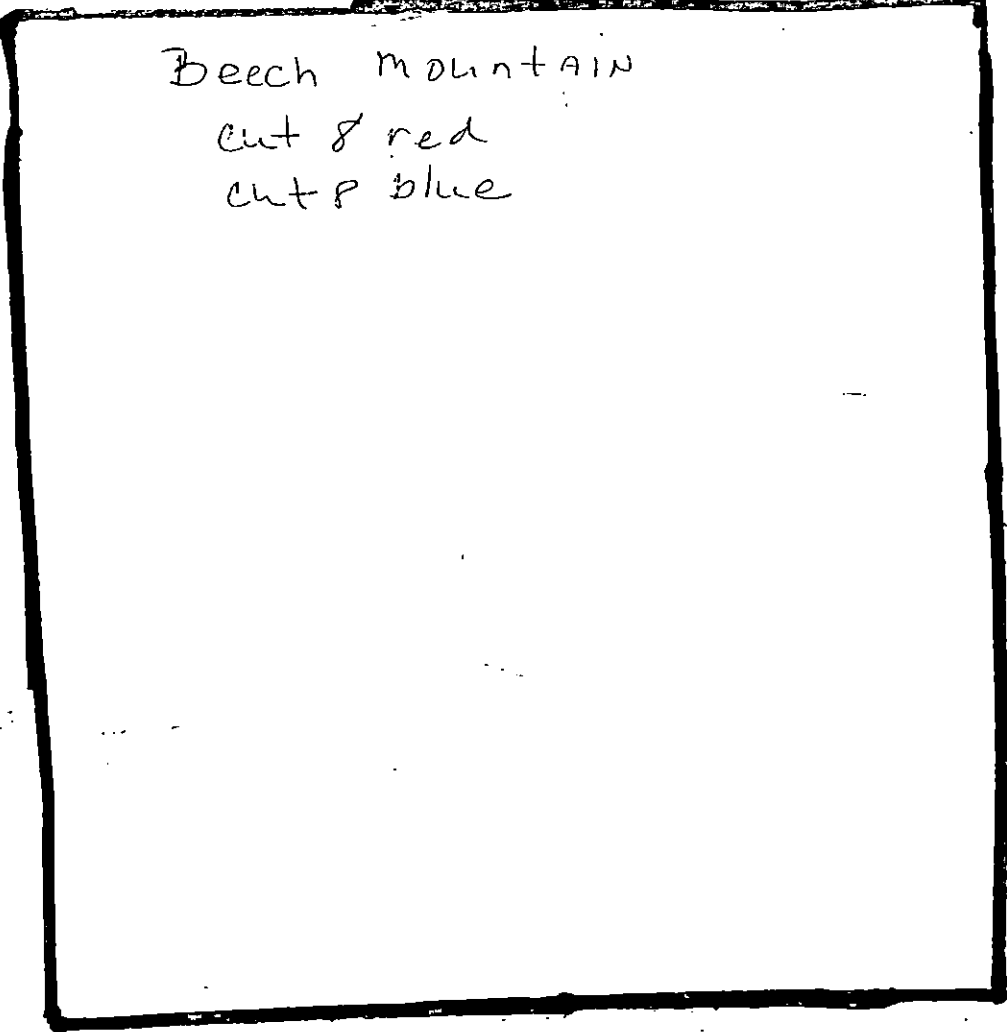 Beech mountAIN
cut 8 red
cut 8 blue